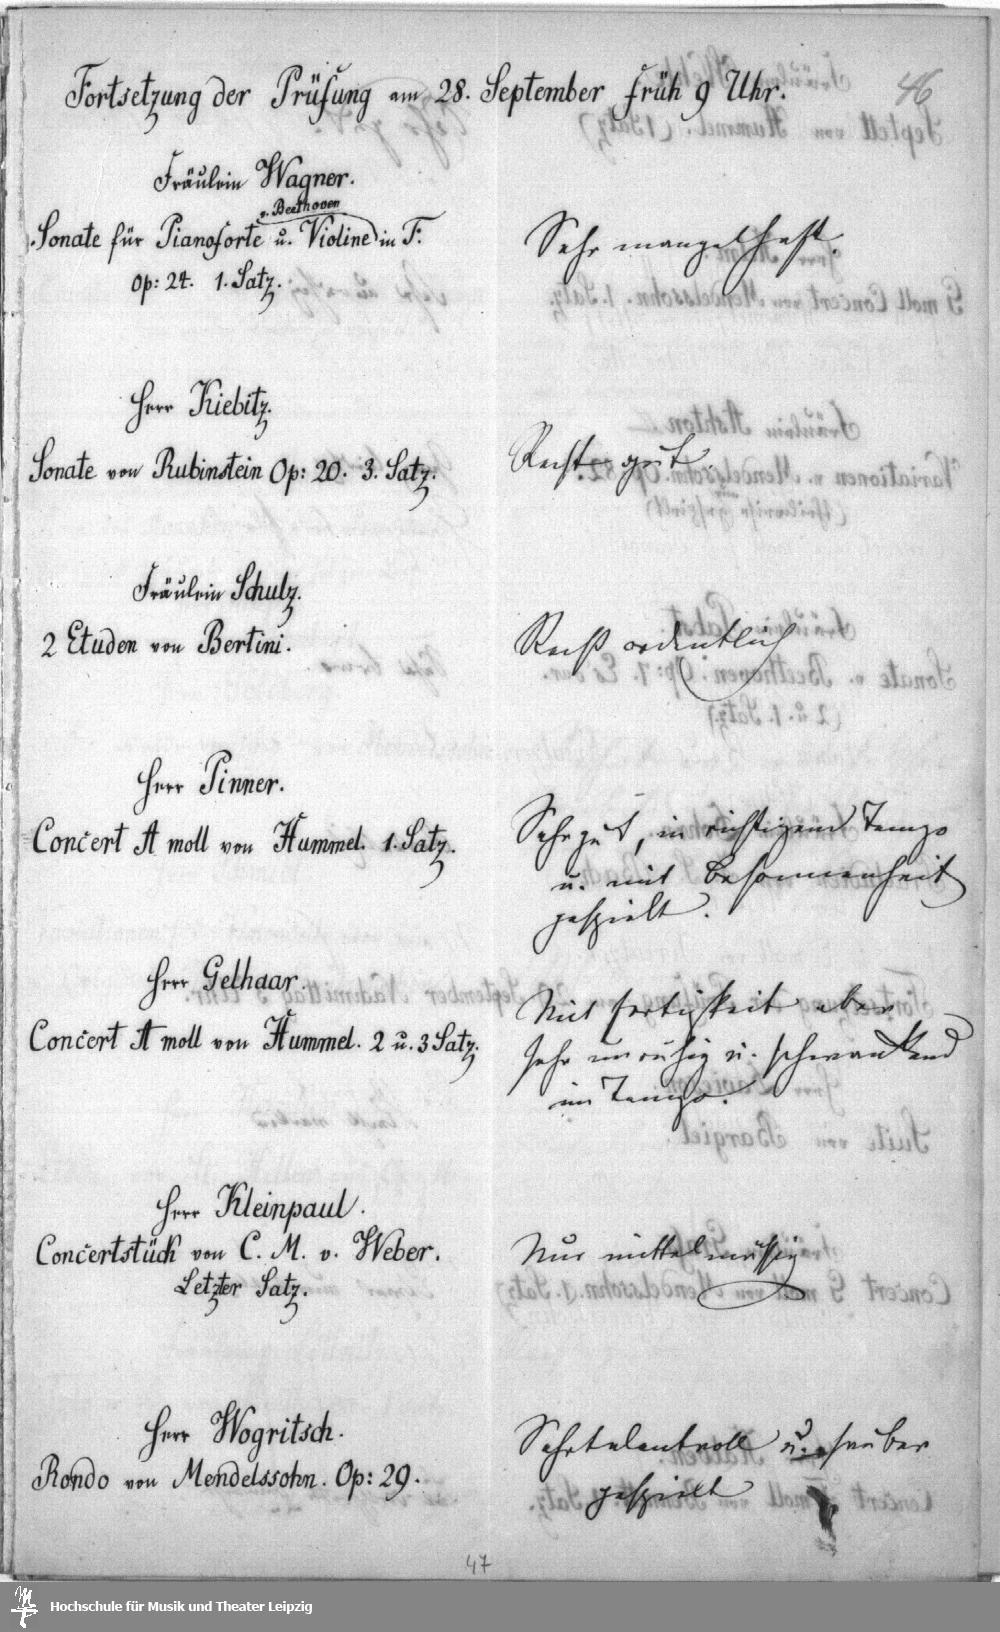 Fortsetzung der Prüfung am 28. September früh 9 Uhr.
46
Fräulein Wagner.
v. Beethoven
Sonate für Pianoforte u. Violine in F:
Op: 24. 1. Satz.
Sehr mangelhaft.
Herr Kiebitz.
Sonate von Rubinstein Op: 20. 3. Satz.
Recht gut.
Fräulein Schulz.
2 Etuden von Bertini.
Recht ordentlich
Herr Pinner.
Concert A moll von Hummel. 1. Satz.
Sehr gut, in richtigem Tempo
u. mit Besonnenheit
gespielt.
Herr Gelhaar.
Concert A moll von Hummel. 2 u. 3 Satz.
Mit Fertigkeit aber
sehr unruhig u. schwankend
im Tempo.
Herr Kleinpaul.
Concertstück von C. M. v. Weber.
Letzter Satz.
Nur mittelmäßig
Herr Wogritsch.
Rondo von Mendelssohn. Op: 29.
Sehr talentvoll u. sauber
gespielt
47
Hochschule für Musik und Theater Leipzig